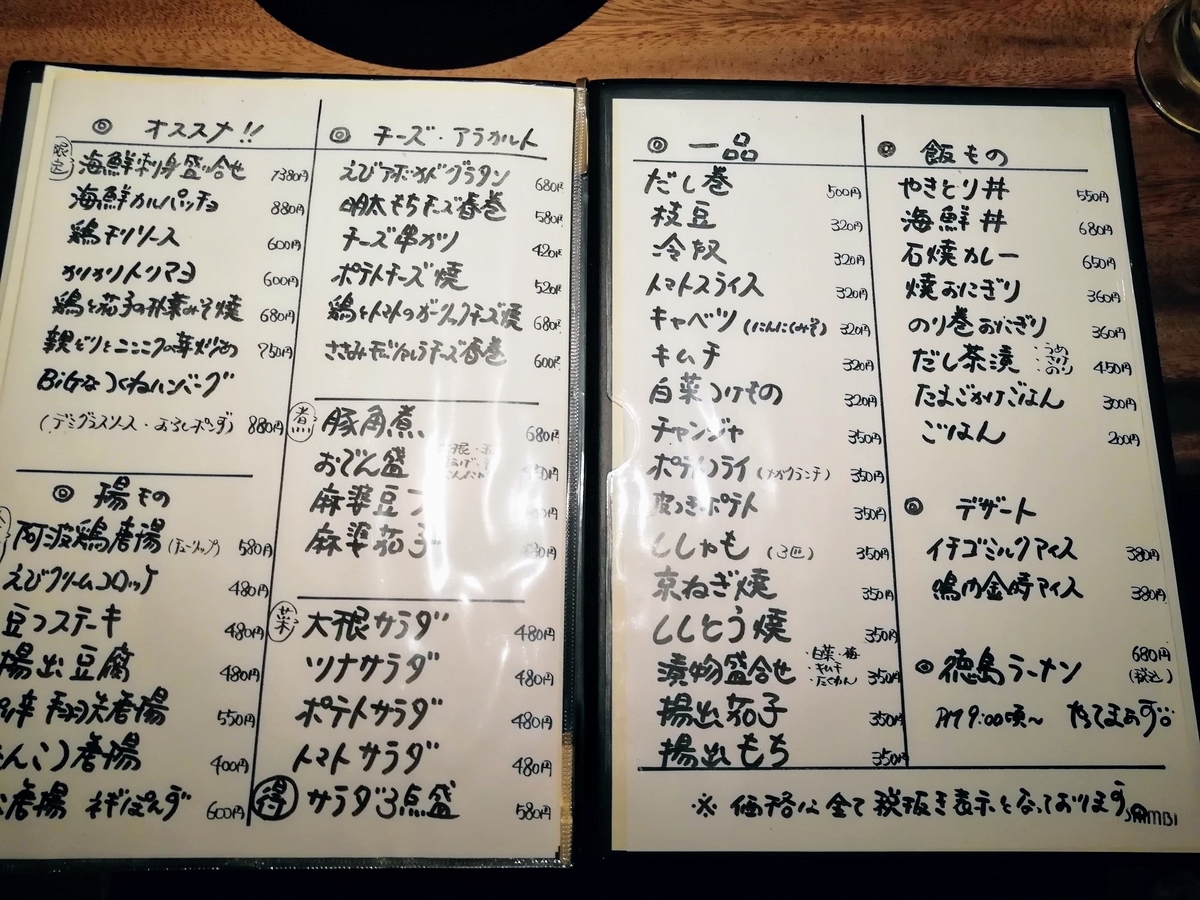 ◎ オススメ!!
限定 海鮮刺身盛り合せ 1380円
海鮮カルパッチョ 880円
鶏チリソース 600円
カリカリトリマヨ 600円
鶏と茄子の朴葉みそ焼 680円
親どりとニンニクの芽炒め 750円
BiGなつくねハンバーグ
(デミグラスソース・おろしポンず) 880円
◎ 揚もの
阿波鶏唐揚 (チューリップ) 580円
えびクリームコロッケ 480円
豆フステーキ 480円
揚出豆腐 480円
唐揚 550円
なんこつ唐揚 400円
唐揚 ネギぽんず 600円
◎ チーズ・アラカルト
えびアボカドグラタン 680円
明太もちチーズ春巻 580円
チーズ串カツ 420円
ポテトチーズ焼 520円
鶏とトマトのガーリックチーズ焼 680円
ささみモッツァレラチーズ春巻 600円
煮 豚角煮 680円
おでん盛
麻婆豆フ
麻婆茄子
菜 大根サラダ 480円
ツナサラダ 480円
ポテトサラダ 480円
トマトサラダ 480円
得 サラダ3点盛 580円
◎ 一品
だし巻 500円
枝豆 320円
冷奴 320円
トマトスライス 320円
キャベツ (にんにくみそ) 320円
キムチ 320円
白菜つけもの 320円
チャンジャ 350円
ポテトフライ (ナガクランチ) 350円
皮つきポテト 350円
ししゃも (3匹) 350円
京ねぎ焼 350円
ししとう焼 350円
漬物盛合せ ・白菜・梅 ・キムチ ・たくわん 350円
揚出茄子 350円
揚出もち 350円
◎ 飯もの
やきとり丼 550円
海鮮丼 680円
石焼カレー 650円
焼おにぎり 360円
のり巻おにぎり 360円
だし茶漬 ・うめ ・さけ ・のり 450円
たまごかけごはん 300円
ごはん 200円
◎ デザート
イチゴミルクアイス 380円
鳴門金時アイス 380円
◎ 徳島ラーメン 680円 (税込)
PM9:00頃〜 やってます。
※ 価格は全て税抜き表示となっております。